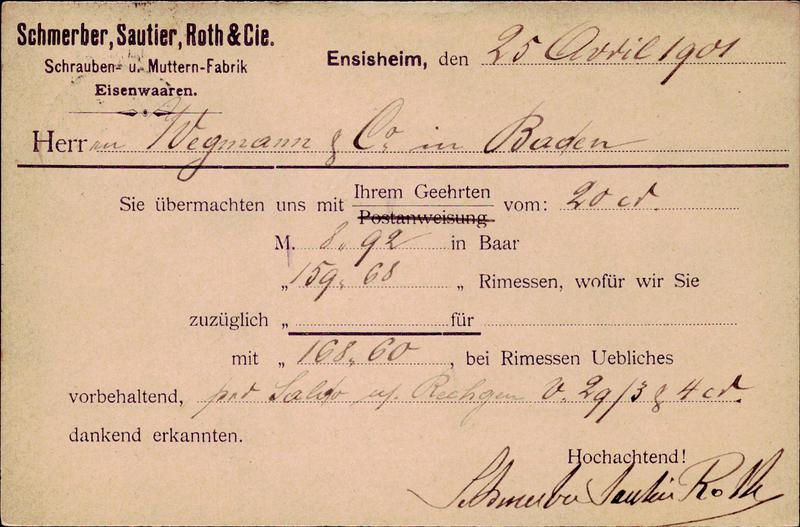 Schmerber, Sautier, Roth & Cie.
Schrauben- u. Muttern-Fabrik
Eisenwaaren.
Ensisheim, den 25 Avril 1901
Herren Wegmann & Co. in Baden
Sie übermachten uns mit Ihrem Geehrten vom: 20 cr.
Postanweisung
M. 8.92 in Baar
„ 159.68 „ Rimessen, wofür wir Sie
zuzüglich „ für
mit „ 168.60, bei Rimessen Uebliches
vorbehaltend, per Saldo Rechgen v. 29/3 & 4 cr.
dankend erkannten.
Hochachtend!
Schmerber Sautier Roth